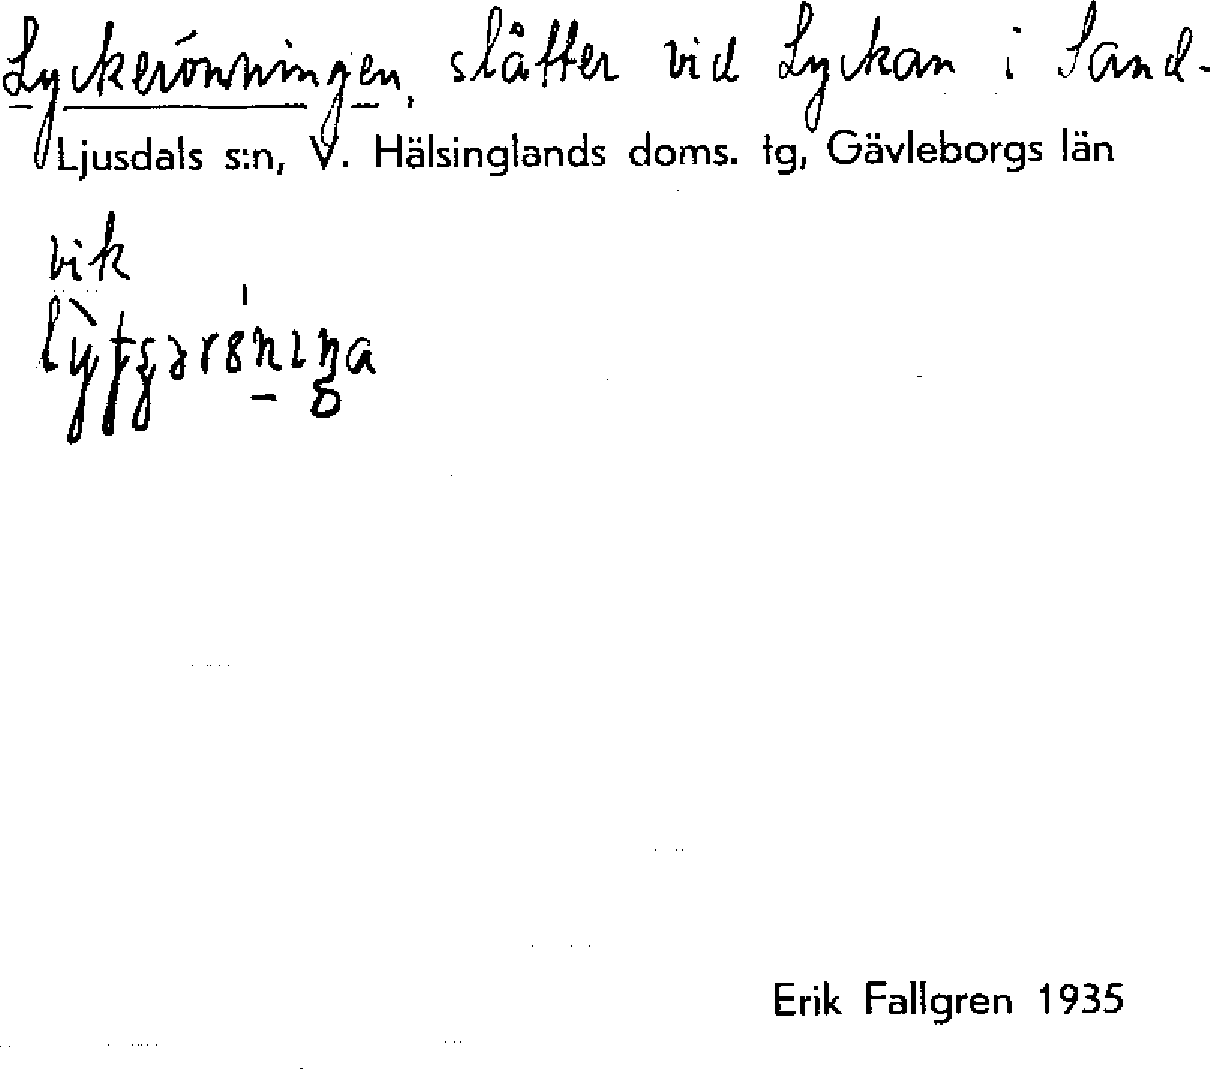 Lyckerönningen, slåtter vid Lyckan i Sand-
Ljusdals s:n, V. Hälsinglands doms. tg, Gävleborgs län
vik
Erik Fallgren 1935